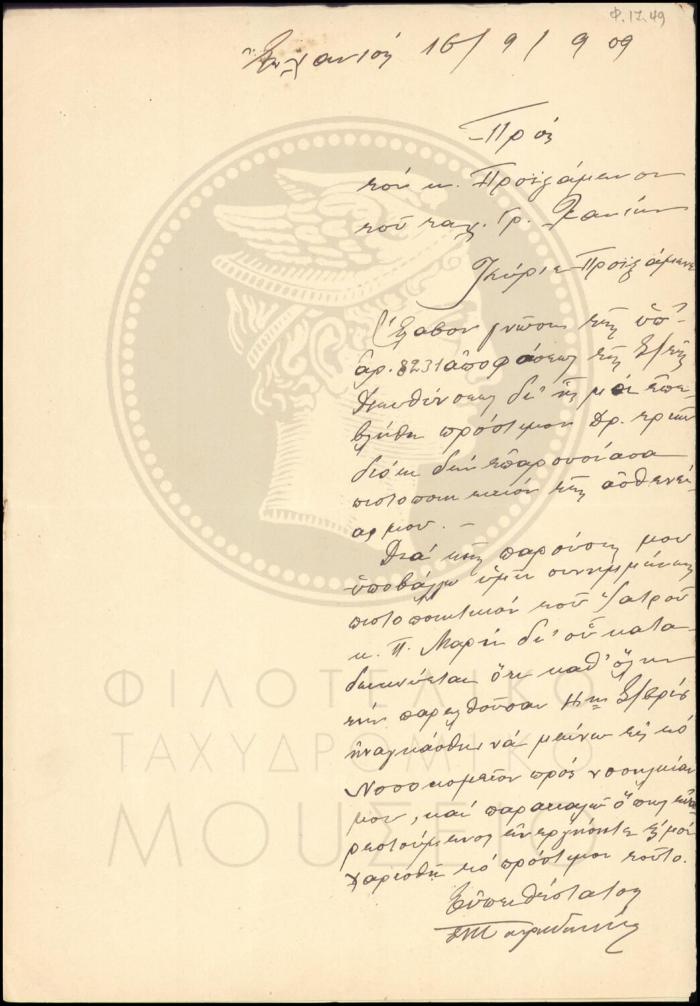 Φ.17.49
Ἐν Χανίοις 16/9/909
Πρὸς
τὸν κ. Προϊστάμενον
τοῦ ταχ. Γρ. Χανίων
Κύριε Προϊστάμενε
Ἔλαβον γνῶσιν τῆς ὑπ'
ἀρ. 8231 ἀποφάσεως τῆς Σ/τῆς
Διευθύνσεως δι' ἧς μοι ἐπε-
βλήθη πρόστιμον Δρ. τριῶν
διότι δὲν ἐπαρουσίασα
πιστοποιητικὸν τῆς ἀσθενεί
ας μου. —
Διὰ τῆς παρούσης μου
ὑποβάλλω ὑμῖν συνημμένως
πιστοποιητικὸν τοῦ Ἰατροῦ
κ. Π. Μαρῆ δι' οὗ κατα-
δεικνύεται ὅτι καθ' ὅλην
τὴν παρελθοῦσαν
ἠναγκάσθην νὰ μείνω εἰς τὸ
Νοσοκομεῖον πρὸς νοσηλείαν
μου, καὶ παρακαλῶ ὅπως εὐα
ρεστούμενος ἐνεργήσητε ἵνα μοὶ
χαρισθῇ τὸ πρόστιμον τοῦτο.
Εὐπειθέστατος
ΦΙΛΟΤΕΛΙΚΟ
ΤΑΧΥΔΡΟΜΙΚΟ
ΜΟΥΣΕΙΟ